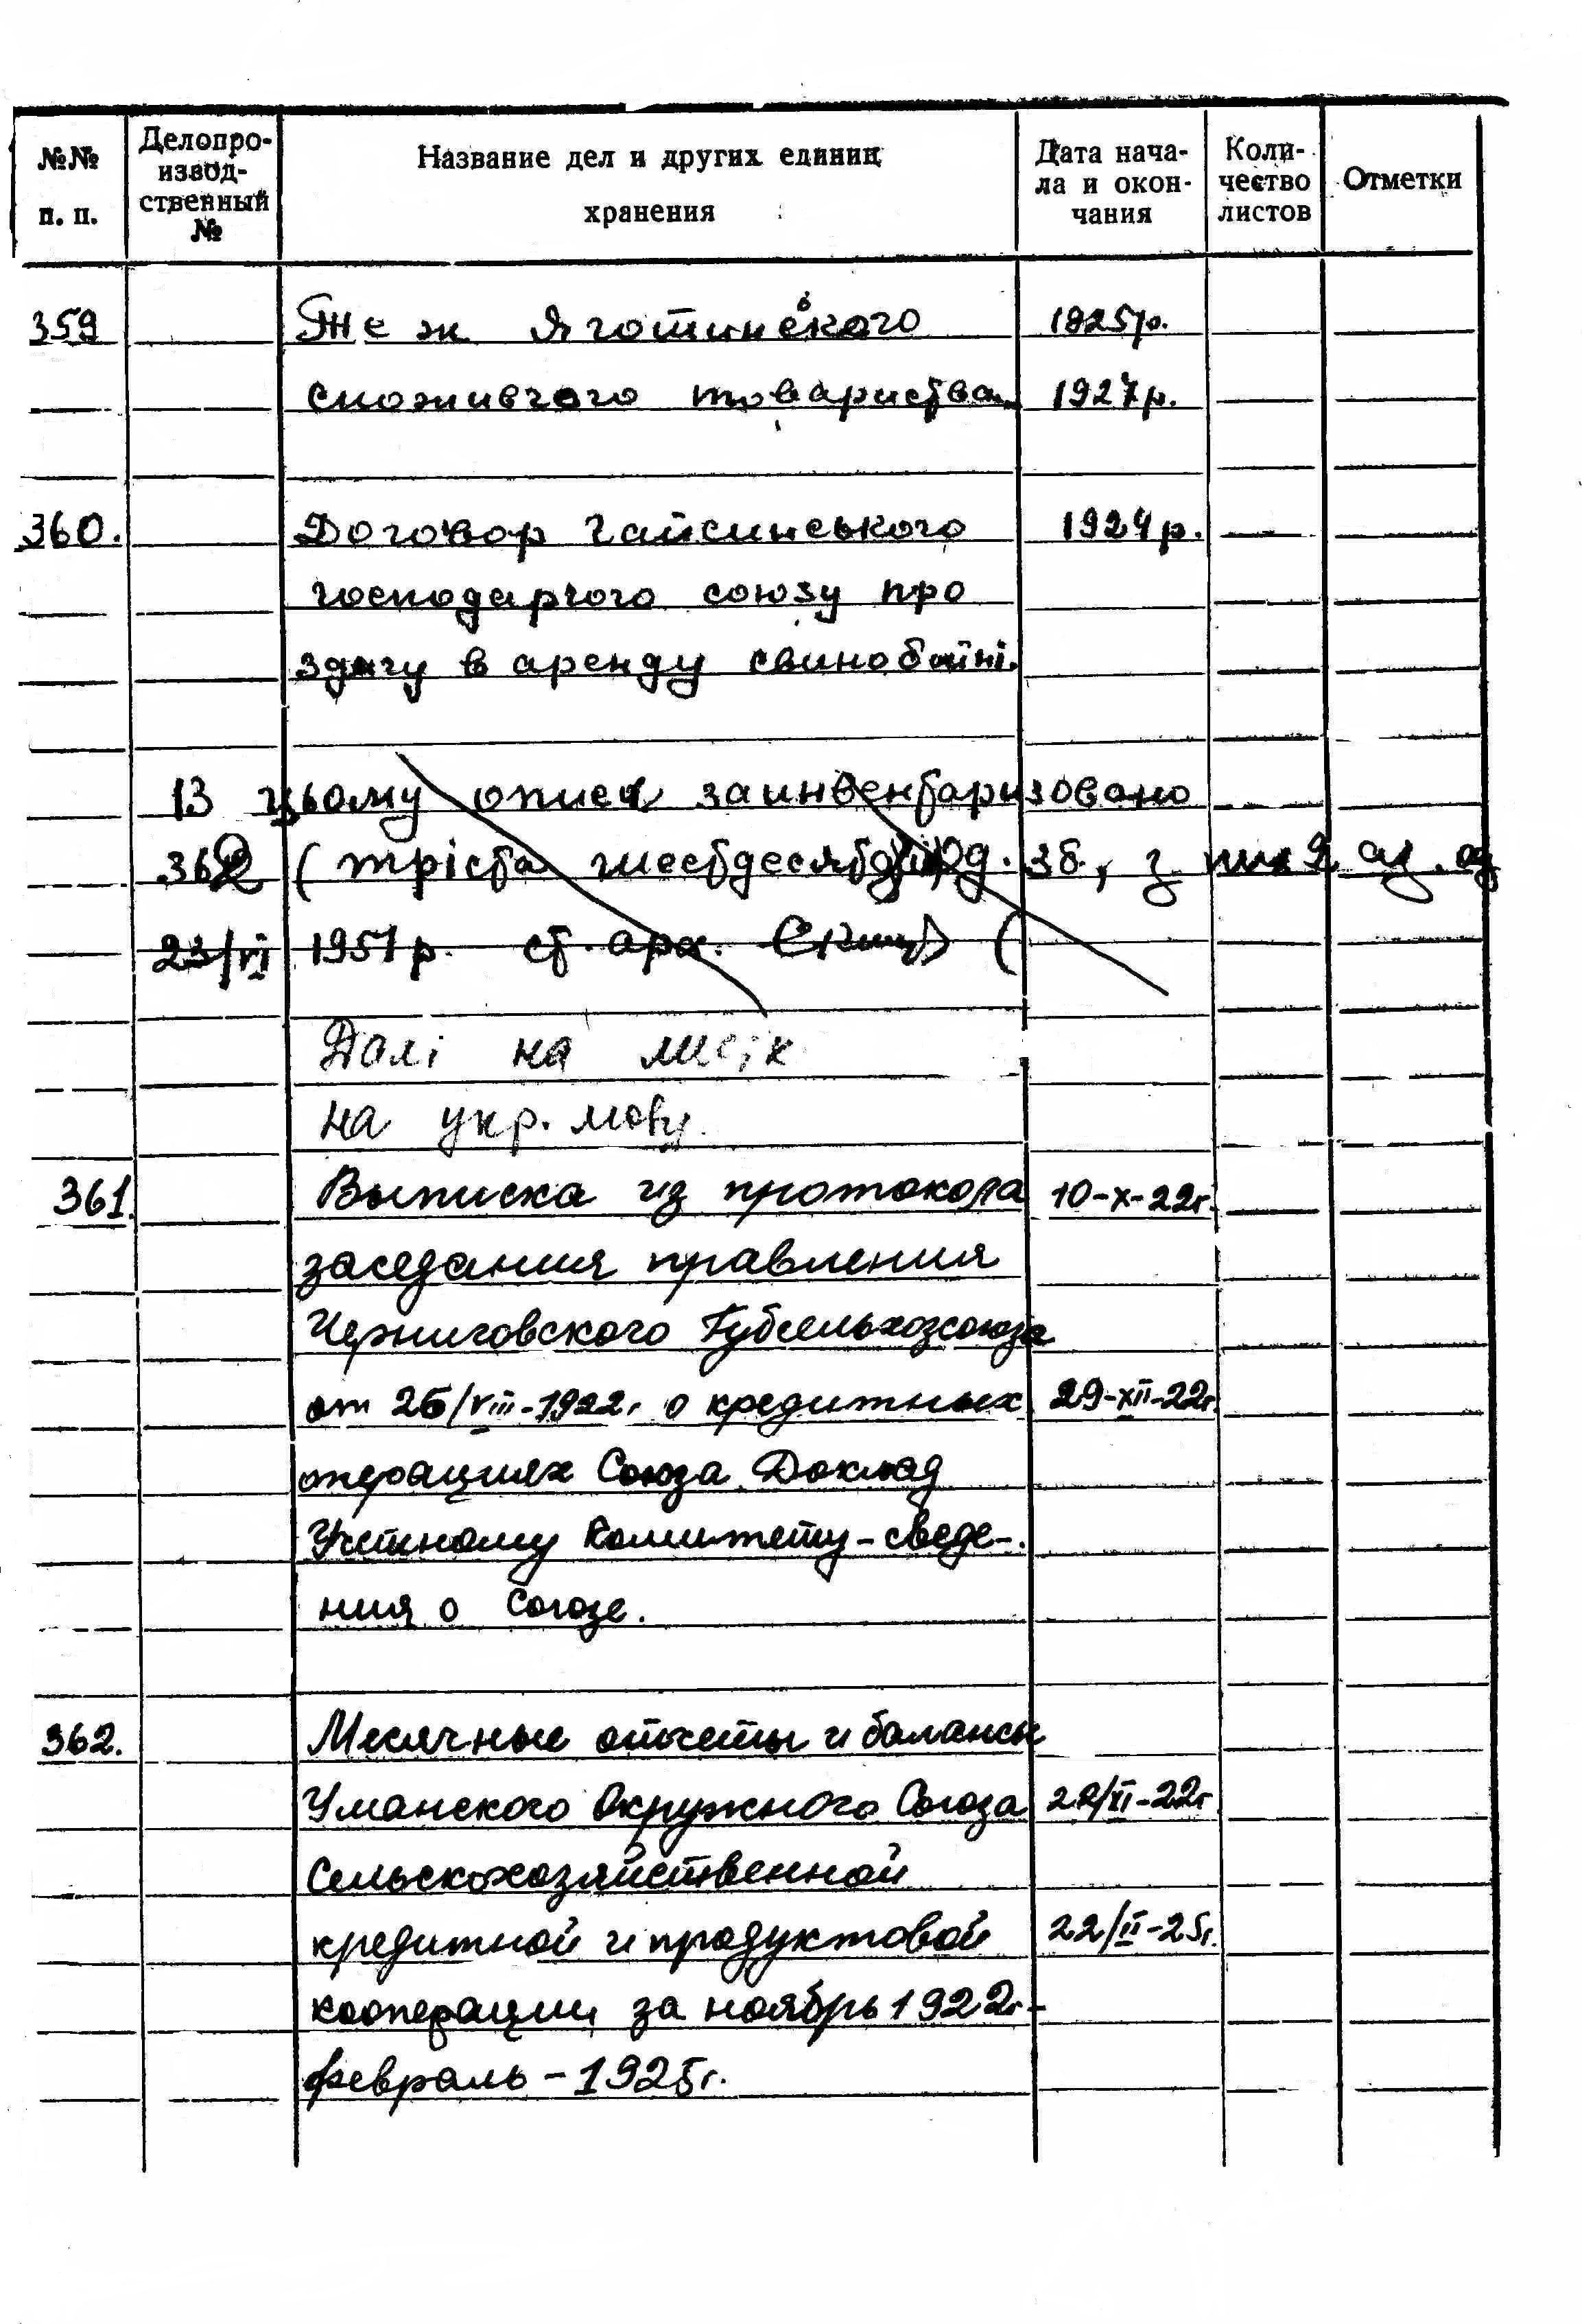 №№ п. п.
Делопро-
извод-
ственный
№
Название дел и других единиц
хранения
Дата нача-
ла и окон-
чания
Коли-
чество
листов
Отметки
359 Те ж Яготинського 1925р.
споживчого товариства 1927р.
360. Договор Гайсинського 1924р.
господарчого союзу про
здачу в аренду свинобойні.
В цьому описі заинвентаризовано
362 (триста шестдесят дві) од. зб., з них 2
23/VI 1951р. ст. арх.
Далі на
на укр. мову.
361. Выписка из протокола 10-X-22г.
заседания правления
Черниговского Губсельхозсоюза
от 26/VIII-1922г. о кредитных 29-XII-22г.
операциях Союза. Доклад
Учетному Комитету - сведе-
ния о Союзе.
362. Месячные отчеты и балансы
Уманского Окружного Союза 22/XI-22г
Сельскохозяйственной
кредитной и продуктовой 22/II-25г.
кооперации за ноябрь 1922г-
февраль - 1925г.